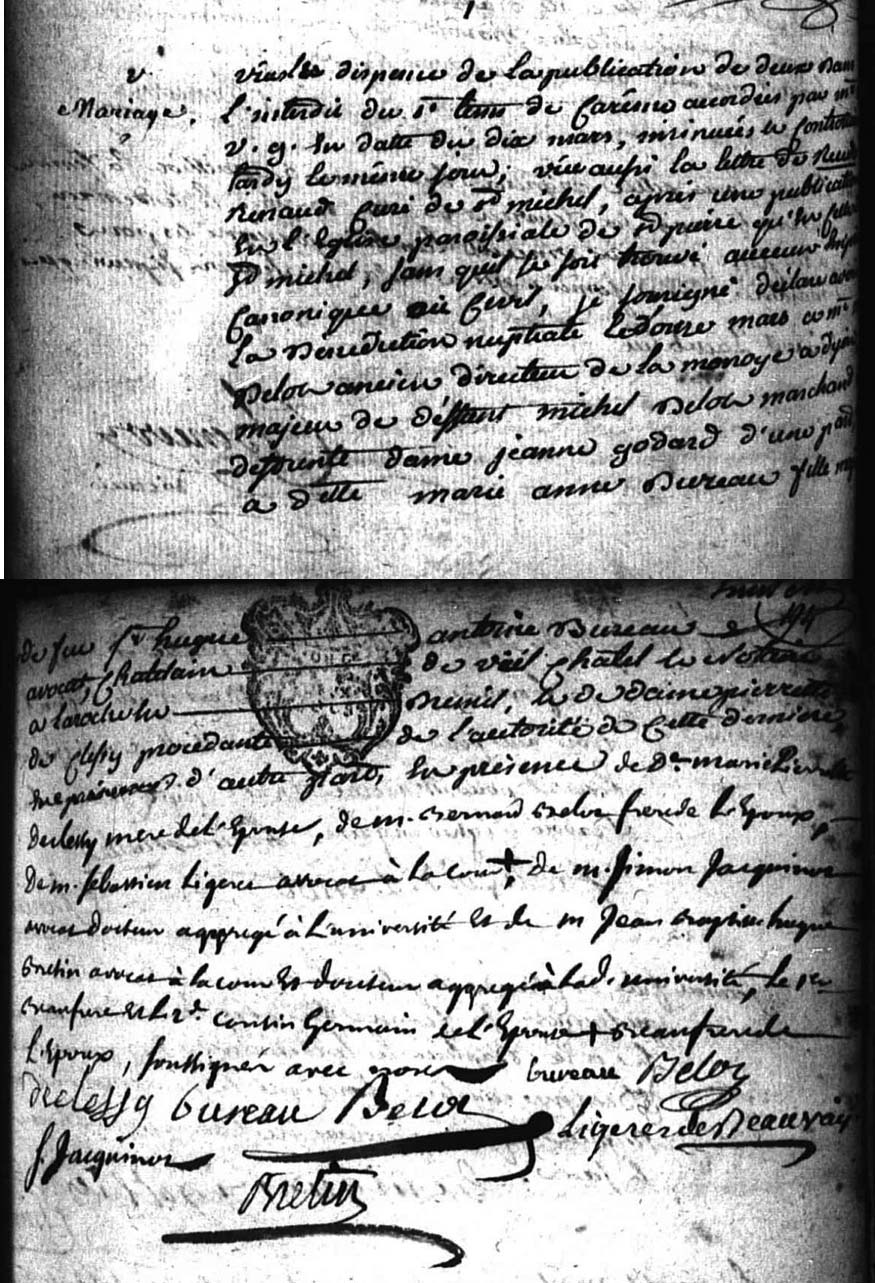 v.
Mariage.
vû les dispense de la publication de deux bans
l'interdit du st tems de Carême accordées par mr
v. g. En datte du dix mars, insinuées et Controllées
tardy le même jour, vûe aussi la lettre de
Renaud Curé de st michel, après une publication
En l'Eglise paroissiale de st pierre qu'En celle
st michel, sans qu'il se soit trouvé aucun
Canonique ou Civil, je soussigné déclare avoir
la Bénédiction nuptiale le douze mars a mr
Belot ancien directeur de la monoye a dijon
majeur de deffunt michel Belot marchand
deffunte dame jeanne godard d'une part
a dlle marie anne Bureau fille
de feu sr hugue antoine Bureau
avocat, Chatelain de vieil Chatel le
a la roche en Brenil, et de dame pierrette
de Clessy procédante de l'autorité de Cette derniere
d'autre part, En présence de De marie Pierrette
declessy mere de l'Epouse, de m. Bernard Belot frere de l'Epoux,
de m. sebastien Ligeret avocat à la cour + de m. Simon Jacquinot
avocat docteur aggregé à l'université Et de m Jean Baptiste hugue
Bretin avocat à la cour Et docteur aggregé à lad. université, le 1er
Beaufrere Et le 2d. cousin Germain de l'Epouse + Beaufrere de
l'Epoux, soussignés avec nous bureau Belot
declessy bureau Belot
Ligeret de Beauvais
S. Jacquinot
Bretin